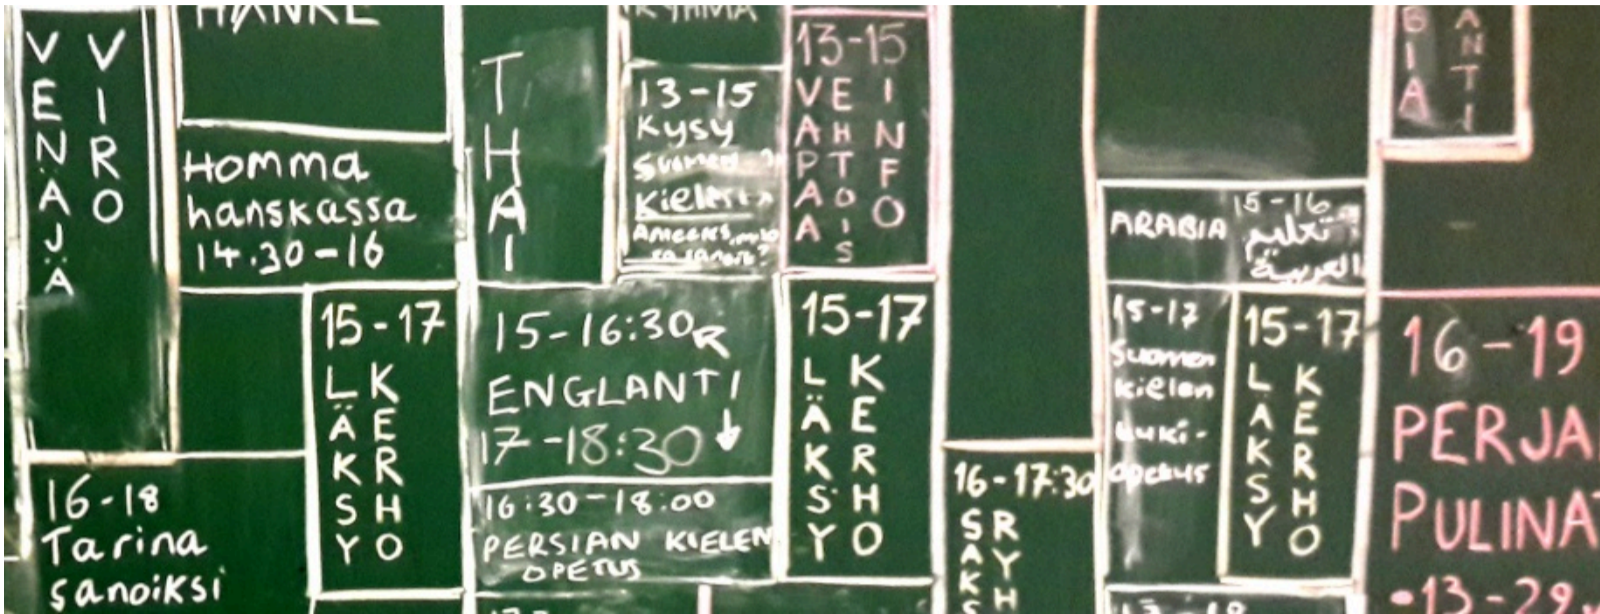 VENÄJÄ
VIRO
HANKE
Homma
hanskassa
14.30-16
15-17
LÄKSY
KERHO
16-18
Tarina
sanoiksi
THAI
RYHMÄ
13-15
Kysy
Suomen
Kielestä
15-16:30
ENGLANTI
17-18:30
16:30-18:00
PERSIAN KIELEN
OPETUS
13-15
VAPAA
EHTOIS
INFO
15-17
LÄKSY
KERHO
16-17:30
SAKS
RYH
ARABIA
15-16
تعليم
العربية
15-17
Suomen
kielen
luki-
opetus
15-17
LÄKSY
KERHO
BIA
ANTI
16-19
PERJA
PULINA